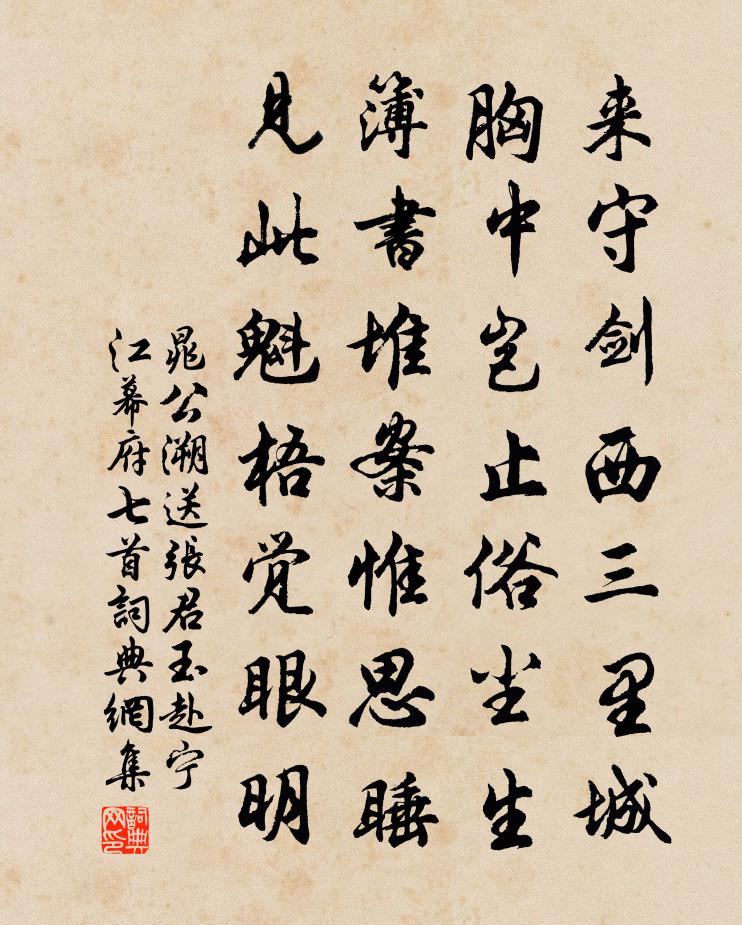 来守剑西三里城
胸中岂止俗尘生
簿書堆案惟思睡
見此魁梧觉眼明
晁公溯送張君玉赴宁
江幕府七首詞典網集
詞典网印